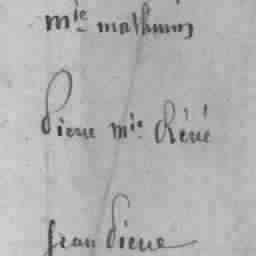 mie mathurin
Pierre mie Réné
jean Pierre